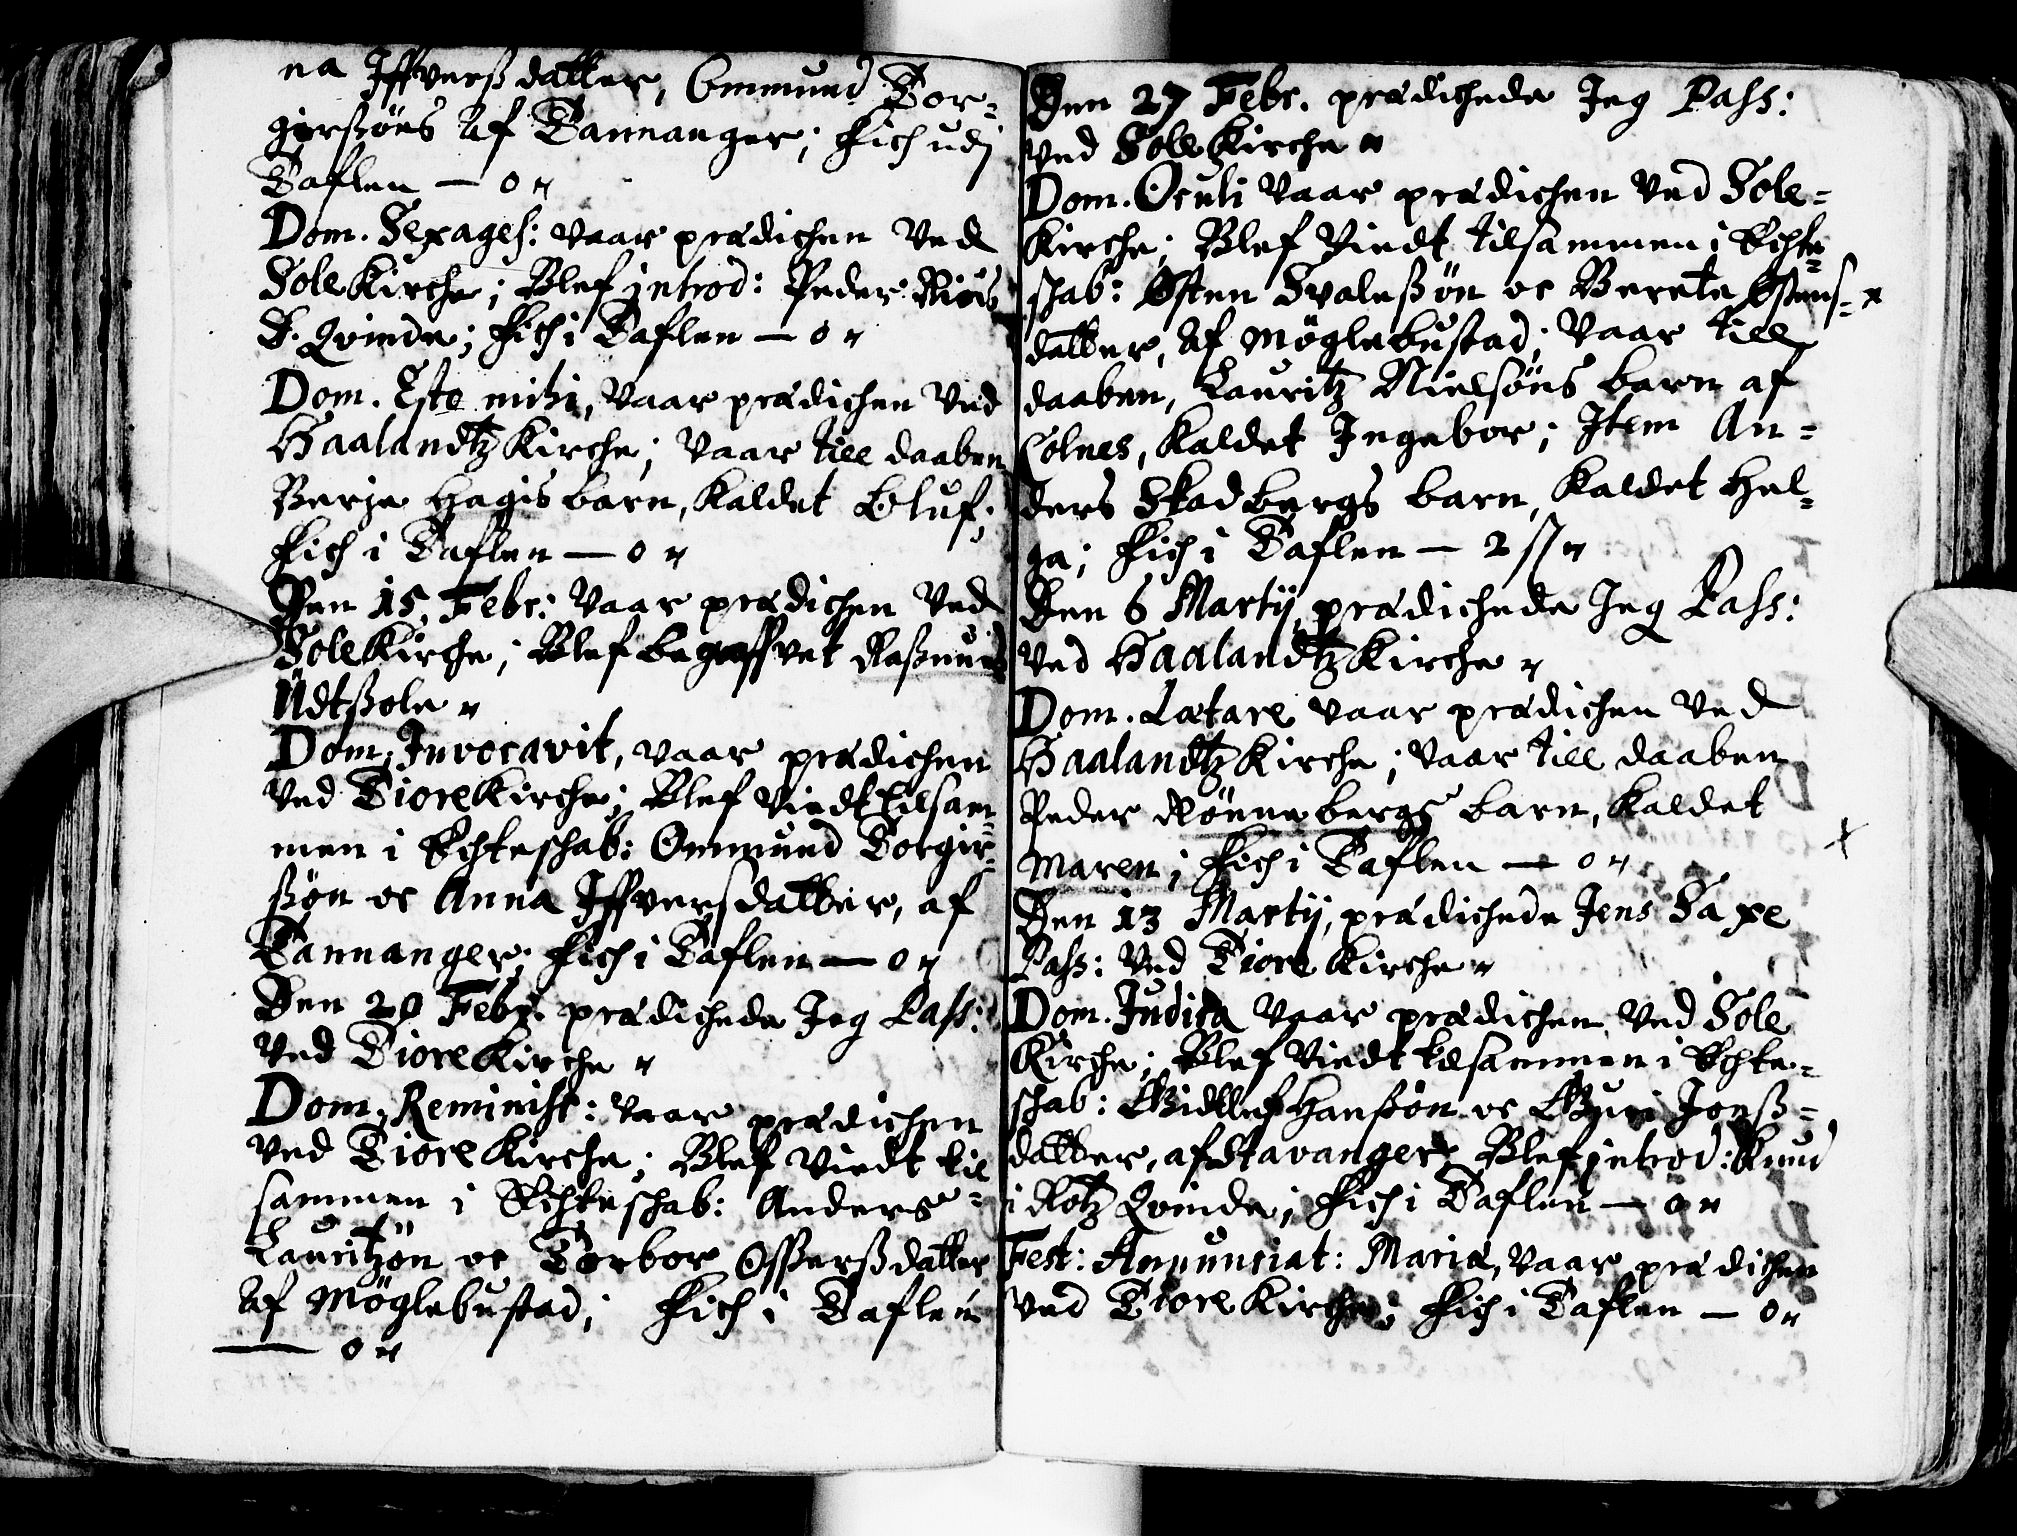 na Iffverßdatter, Ommund Tor-
girßöns af Tannanger; Fich udj
Taflen — 0 "
Dom. Sexages: vaar prædichen ved
Sole Kirche; Blef introd: Peder Riiis
S. Qvinde; Fich i Taflen — 0 "
Dom. Esto mihi, vaar prædichen ved
Haalandtz Kirche; vaar till daaben
Berje Hagis barn, kaldet Oluf;
Fich i Taflen — 0 "
Den 15. Febr: vaar prædichen ved
Sole Kirche; Blef begraffvet Raßmus
Udtßole "
Dom. Invocavit, vaar prædichen
ved Tiore Kirche; Blef viedt tilsam-
men i Echteschab: Ommund Torgir-
ßön oc Anna Iffversdatter, af
Tannanger; Fich i Taflen — 0 "
Den 20 Febr. prædichede Jeg Pass:
ved Tiore Kirche "
Dom. Reminisc: vaar prædichen
ved Tiore Kirche; Blef viedt til-
sammen i Echteschab: Anders
Lauritzön oc Torbor Osserßdatter
af Möglebustad; Fich i Taflen
— 0 "
Den 27 Febr. prædichede Jeg Pass:
ved Sole Kirche "
Dom. Oculi vaar prædichen ved Sole-
Kirche; Blef Viedt tilsammen i Echte-
schab: Østen Svaleßön oc Berete Østens-
datter, af Möglebustad; vaar till
daaben, Lauritz Nielsöns barn af
Colnes, kaldet Ingebor; Item An-
ders Skadbergs barn, kaldet Hel-
ga; Fich i Taflen — 2 ß "
Den 6 Martij, prædichede Jeg Pass:
ved Haalandtz Kirche "
Dom. Lætare vaar prædichen ved
Haalandtz Kirche; vaar till daaben
Peder Rönnebergs barn, kaldet
Maren; Fich i Taflen — 0 "
Den 13 Martij, prædichede Jens Saxe
Pass: ved Tiore Kirche "
Dom. Judica vaar prædichen ved Sole
Kirche; Blef Viedt tilsammen i Echte-
schab: Gidlluf Hanßön oc Guri Jonß-
datter, af Stavanger; Blef introd: Knud
i Rötz Qvinde; Fich i Taflen — 0 "
Fest: Annunciat: Mariæ, vaar prædichen
ved Tiore Kirche; Fich i Taflen — 0 "